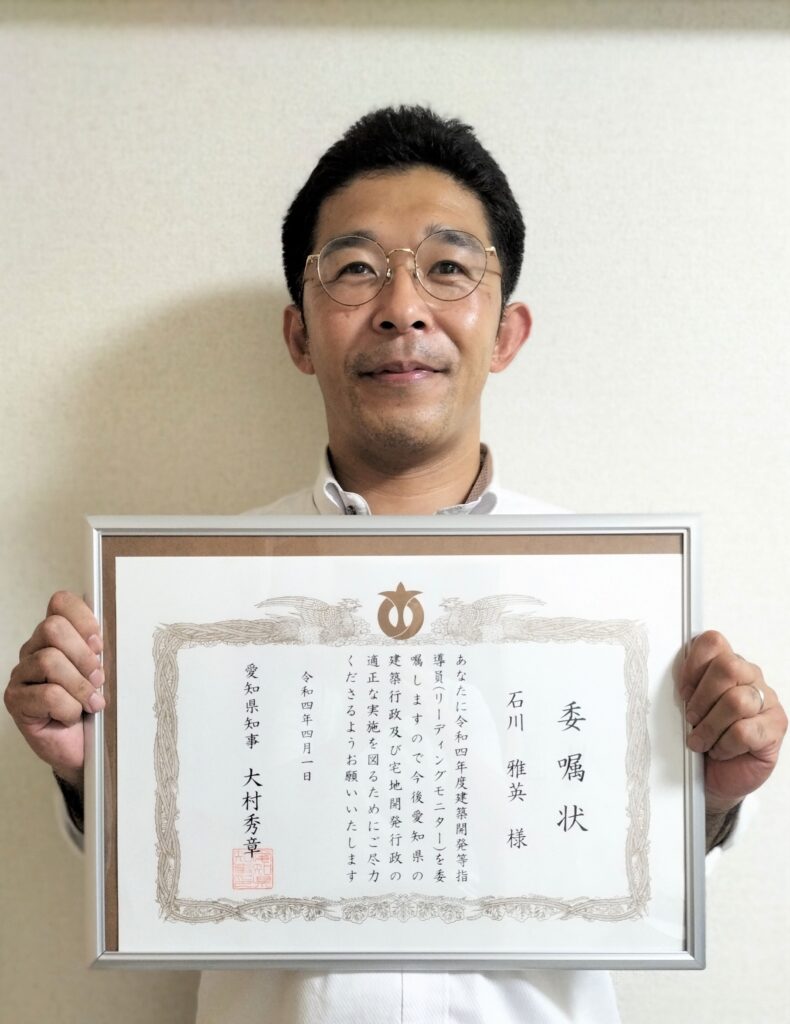 委嘱状
石川 雅英 様
あなたに令和四年度建築開発等指
導員(リーディングモニター)を委
嘱しますので今後愛知県の
建築行政及び宅地開発行政の
適正な実施を図るためにご尽力
くださるようお願いいたします
令和四年四月一日
愛知県知事 大村秀章